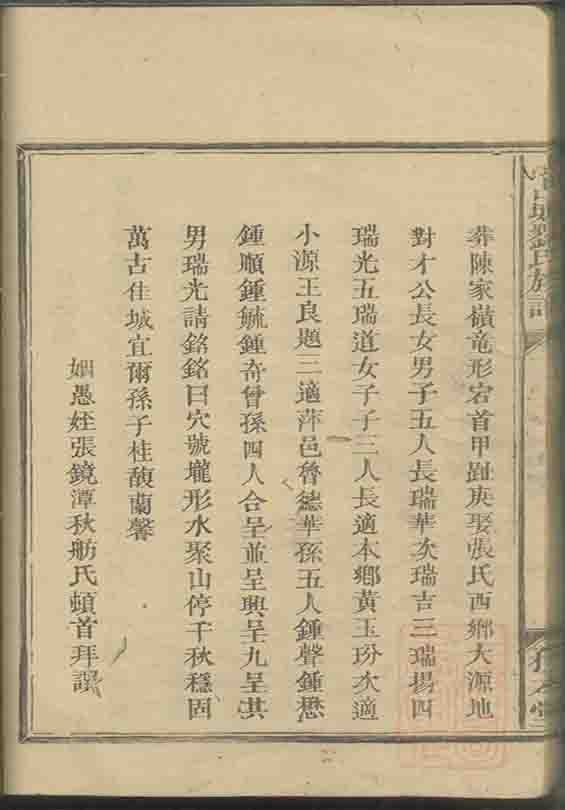 葬陳家嶺竜形宕首甲趾庚娶張氏西鄉大源地
對才公長女男子五人長瑞華次瑞吉三瑞揚四
瑞光五瑞道女子子三人長適本鄉黃玉玢次適
小源王良題三適萍邑曾德華孫五人鍾聲鍾懋
鍾順鍾毓鍾奇曾孫四人合呈並呈興呈九呈其
男瑞光請銘銘曰穴號壠形水聚山停千秋穩固
萬古佳城宜爾孫子桂馥蘭馨
姻愚姪張鏡潭秋舫氏頓首拜譔
劉氏族譜